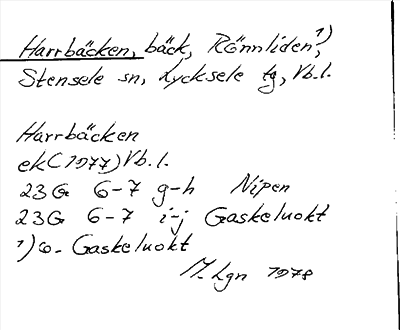 Harrbäcken, bäck, Rönnliden,¹)
Stensele sn, Lycksele tg, Vb.l.
Harrbäcken
ek (1977) Vb.l.
23G 6-7 g-h Nipen
23G 6-7 i-j Gaskeluokt
¹) so. Gaskeluokt
M. Lgn 1978